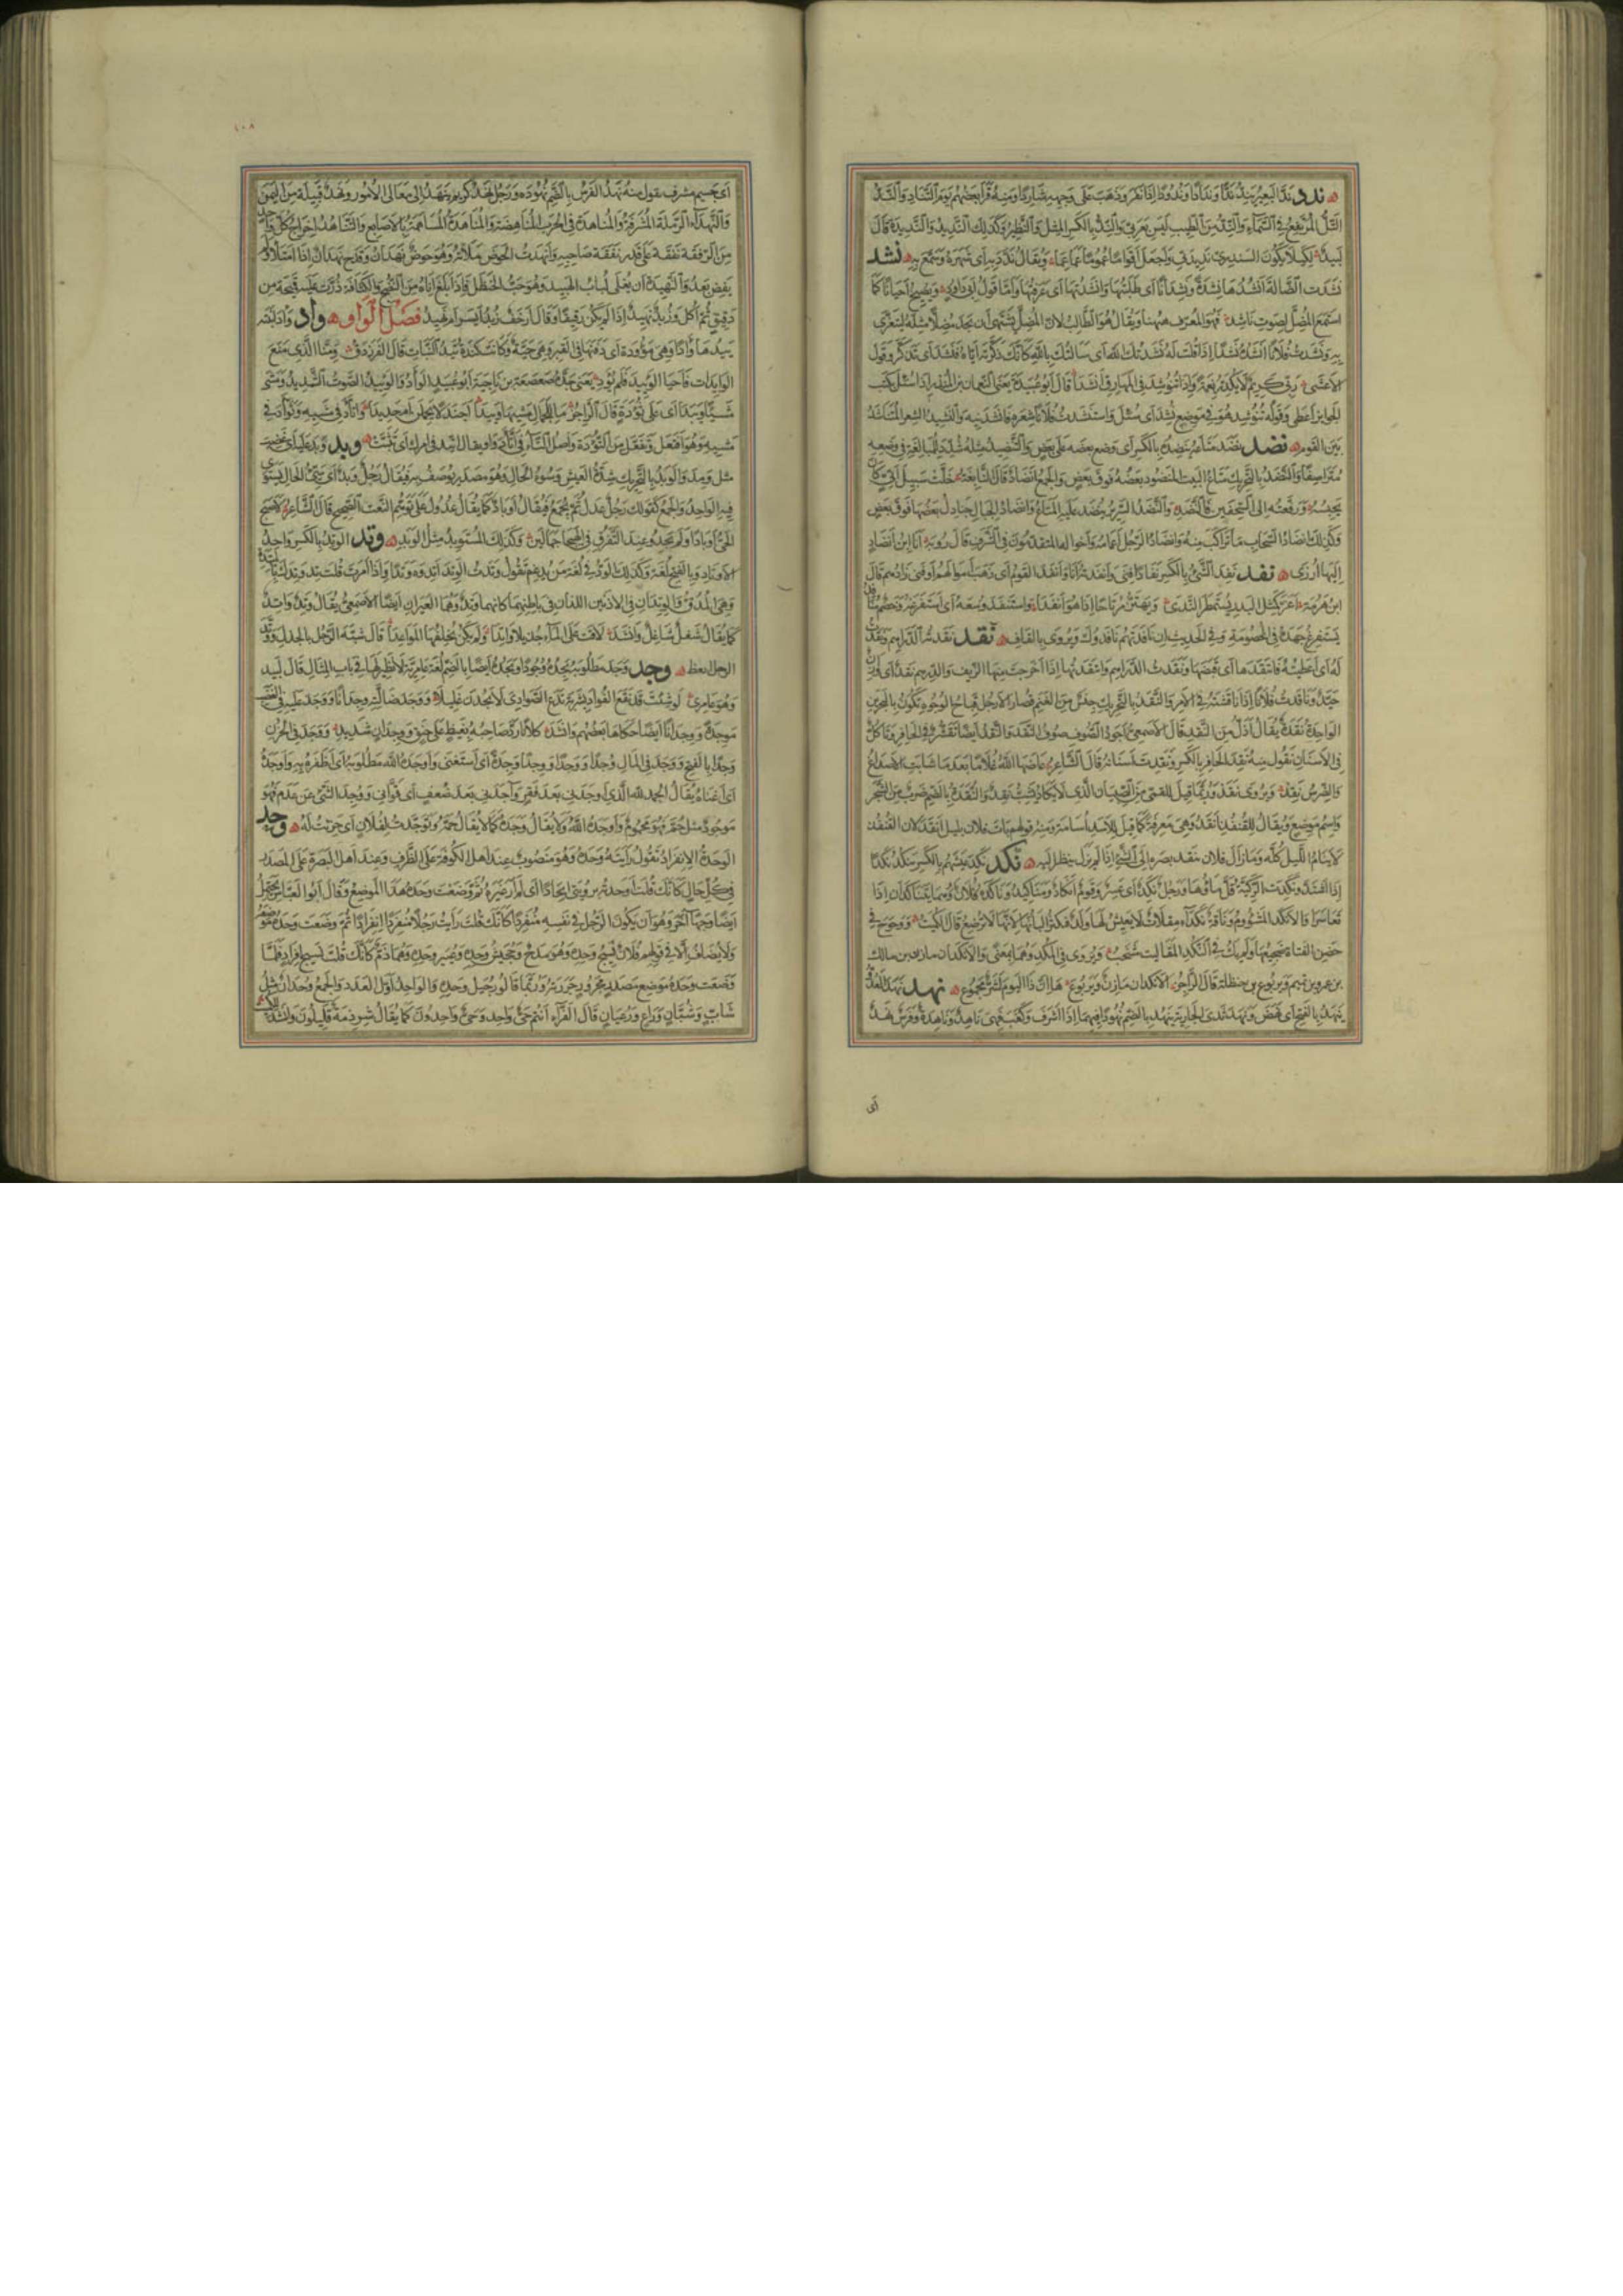 ندد ندّ البعير يندّ ندّا وندادا وندودا اذا نفر وذهب على وجهه شاردا ومنه قرأ بعضهم يوم التناد والندّ
التل المرتفع في السماء والندّ من الطيب ليس بعربي والندّ بالكسر المثل والنظير وكذلك النديد والنديدة قال
لبيد لكيلا يكون السندري نديدتي واجعل اقواما عموما عماعما ويقال ندّد به اى شهره وسمّع به نشد
نشدت الضالة انشدها نشدة ونشدانا اى طلبتها وانشدتها اى عرفتها واما قول ابى دواد ويصيخ احيانا كما
استمع المضل لصوت ناشد فهو المعرف ههنا ويقال هو الطالب لان المضل يشتهى ان يجد مضلا مثله ليتعزى
به ونشدت فلانا انشده نشدا اذا قلت له نشدتك الله اى سالتك بالله كانك ذكرته اياه فنشد اى تذكر وقول
الاعشى ربى كريم لا يكدر نعمة واذا تنوشد فى المهارق انشدا قال ابو عبيدة يعنى النعمان بن المنذر اذا سئل بكتب
الجوايز اعطى وقوله تنوشد هو فى موضع نشد اى سئل واستنشدت فلانا شعره فانشدنيه والنشيد الشعر المتناشد
بين القوم نضد نضد متاعه ينضده بالكسر اى وضع بعضه على بعض والتنضيد مثله شدد للمبالغة فى وضعه
متراصفا والنضد بالتحريك متاع البيت المنضود بعضه فوق بعض والجمع انضاد قال النابغة خلّت سبيل اتىّ كان
يحبسه ورفعته الى السجفين فالنضد والنضد السرير ينضد عليه المتاع وانضاد الجبال جنادل بعضها فوق بعض
وكذلك انضاد السحاب ما تراكب منه وانضاد الرجل اعمامه واخواله المتقدمون فى الشرف قال روبة انا ابن انضاد
اليها ارزى نفد نفد الشئ بالكسر نفادا فنى وانفدته انا وانفد القوم اى ذهبت اموالهم او فنى زادهم قال
ابن هرمة اغر كمثل البدر يستمطر الندى ويهتز مرتاحا اذا هو انفدا واستنفد وسعه اى استفرغه وخصم منافد
يستفرغ جهده فى الخصومة وفى الحديث ان نافدتهم نافدوك ويروى بالقاف نقد نقدته الدراهم ونقدت
له اى اعطيته فانتقدها اى قبضها ونقدت الدراهم وانتقدتها اذا اخرجت منها الزيف والدرهم نقد اى وازن
جيد وناقدت فلانا اذا ناقشته فى الامر والنقد بالتحريك جنس من الغنم قصار الارجل قباح الوجوه تكون بالبحرين
الواحدة نقدة يقال اذلّ من النقد قال الاصمعى اجود الصوف صوف النقد والنقد ايضا تقشّر فى الحافر وتاكل
فى الاسنان تقول منه نقد الحافر بالكسر ونقدت اسنانه قال الشاعر عاضها الله غلاما بعد ما شابت الاصداغ
والضرس نقد ويروى نقد وربما قيل للقمئ من الصبيان الذى لا يكاد يشبّ نقد والنقد بالضم ضرب من الشجر
واسم موضع ويقال للقنفذ انقد وهى معرفة كما قيل للاسد اسامة ومنه قولهم بات فلان بليل انقد لان القنفذ
لا ينام الليل كله وما زال فلان ينقد بصره الى الشئ اذا لم يزل ينظر اليه نكد نكد عيشهم بالكسر ينكد نكدا
اذا اشتد ونكدت الركية قلّ ماؤها ورجل نكد اى عسر وقوم انكاد ومناكيد وناكده فلان وهما يتناكدان اذا
تعاسرا والانكد المشؤوم وناقة نكداء مقلات لا يعيش لها ولد فكثر البانها لانها لا ترضع قال الكميت ووحوح فى
حضن الفتاة ضجيعها ولم يك فى النكد المقاليت مشخب ويروى فى المكد وهما بمعنى والانكدان مازن بن مالك
بن عمرو بن تميم ويربوع بن حنظلة قال الراجز الانكدان مازن ويربوع ها ان ذا اليوم لشر مجموع نهد نهد الى العدو
ينهد بالفتح اى نهض ونهد ثدى الجارية ينهد بالضم نهودا اذا اشرف وكعب فهى ناهد وناهدة وفرس نهد
اى
١٠٨
اى جسيم مشرف تقول منه نهد الفرس بالضم نهودة ورجل نهد كريم ينهد الى معالى الامور ونهد قبيلة من اليمن
والنهداء الرملة المشرفة والمناهدة فى الحرب المناهضة والمناهدة المساهمة بالاصابع والتناهد اخراج كل واحد
من الرفقة نفقة على قدر نفقة صاحبه وانهدت الحوض ملاته وهو حوض نهدان وقدح نهدان اذا امتلا ولم
يفض بعد والنهيدة ان يغلى لباب الهبيد وهو حب الحنظل فاذا بلغ اناه من النضج والكثافة ذرّت عليه قميحة من
دقيق ثم اكل وزبد نهيد اذا لم يكن رقيقا وقال ارخف زبد ايسر ام نهيد فصل الواو وأد وأد ابنته
يئدها وأدا وهى موؤدة اى دفنها فى القبر وهى حية وكانت كندة تئد البنات قال الفرزدق ومنا الذى منع
الوايدات فاحيا الوئيد فلم تؤد يعنى جده صعصعة بن ناجية ابو عبيد الوأد والوئيد الصوت الشديد ومشى
مشيا وئيدا اى على تؤدة قال الراجز ما للجمال مشيها وئيدا اجندلا يحملن ام حديدا واتّأد فى مشيه وتوأد فى
مشيه وهو افتعل وتفعل من التؤدة واصل التاء فى اتأد واو يقال اتئد فى امرك اى تثبت وبد وبد عليه اى غضب
مثل ومد والوبد بالتحريك شدة العيش وسوء الحال وهو مصدر يوصف به فيقال رجل وبد اى سيئ الحال يستوى
فيه الواحد والجمع كقولك رجل عدل ثم يجمع فيقال اوباد كما يقال عدول على توهم النعت الصحيح قال الشاعر لاصبح
الحى اوبادا ولم يجدوا عند التفرق فى الهيجا جمالين وكذلك المستوبد مثل الوبد وتد الوتد بالكسر واحد
الاوتاد وبالفتح لغة وكذلك الودّ فى لغة من يدغم تقول وتدت الوتد اتده وتدا واذا امرت قلت تد وتدك بالميتدة
وهى المدق والوتدان فى الاذنين اللذان فى باطنهما كانهما وتد وهما العيران ايضا الاصمعى يقال وتد واتد
كما يقال شغل شاغل وانشد لاقت على الماء جذيلا واتدا ولم يكن يخلفها المواعدا قال شبه الرجل بالجذل ووتد
الرجل انعظ وجد وجد مطلوبه يجده وجودا ويجده ايضا بالضم لغة عامرية لا نظير لها فى باب المثال قال لبيد
وهو عامرى لو شئت قد نقع الفواد بشربة تدع الصوادى لا يجدن غليلا ووجد ضالته وجدانا ووجد عليه فى الغضب
موجدة ووجدانا ايضا حكاها بعضهم وانشد كلانا رد صاحبه بغيظ على حنق ووجدان شديد ووجد فى الحزن
وجدا بالفتح ووجد فى المال وجدا ووجدا ووجدا وجدة اى استغنى واوجده الله مطلوبه اى اظفره به واوجده
اى اغناه يقال الحمد لله الذى اوجدنى بعد فقر وآجدنى بعد ضعف اى قوانى ووجد الشئ عن عدم فهو
موجود مثل حمّ فهو محموم واوجده الله ولا يقال وجده كما لا يقال حمّه وتوجدت لفلان اى حزنت له وحد
الوحدة الانفراد تقول رايته وحده وهو منصوب عند اهل الكوفة على الظرف وعند اهل البصرة على المصدر
فى كل حال كانك قلت اوحدته برؤيتى ايحادا اى لم ار غيره ثم وضعت وحده هذا الموضع وقال ابو العباس يحتمل
ايضا وجها آخر وهو ان يكون الرجل فى نفسه منفردا كانك قلت رايت رجلا منفردا انفرادا ثم وضعت وحده موضعه
ولا يضاف الا فى قولهم فلان نسيج وحده وهو مدح وجحيش وحده وعيير وحده وهما ذم كانك قلت نسيج افراد فلما
وضعت وحده موضع مصدر مجرور جررته وربما قالوا رجيل وحده والواحد اول العدد والجمع وحدان مثل
شابّ وشبان وراع ورعيان قال الفراء انتم حى واحد وحى واحدون كما يقال شرذمة قليلون وانشد للكميت